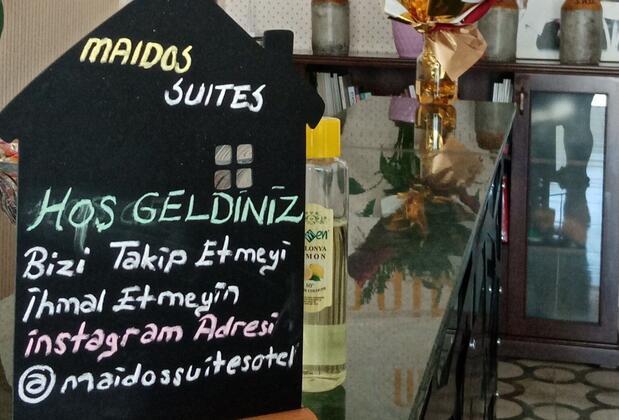 MAIDOS
SUITES
HOŞ GELDİNİZ
Bizi Takip Etmeyi
ihmal Etmeyin
instagram Adresi
@maidossuitesotel
LONYA
MON